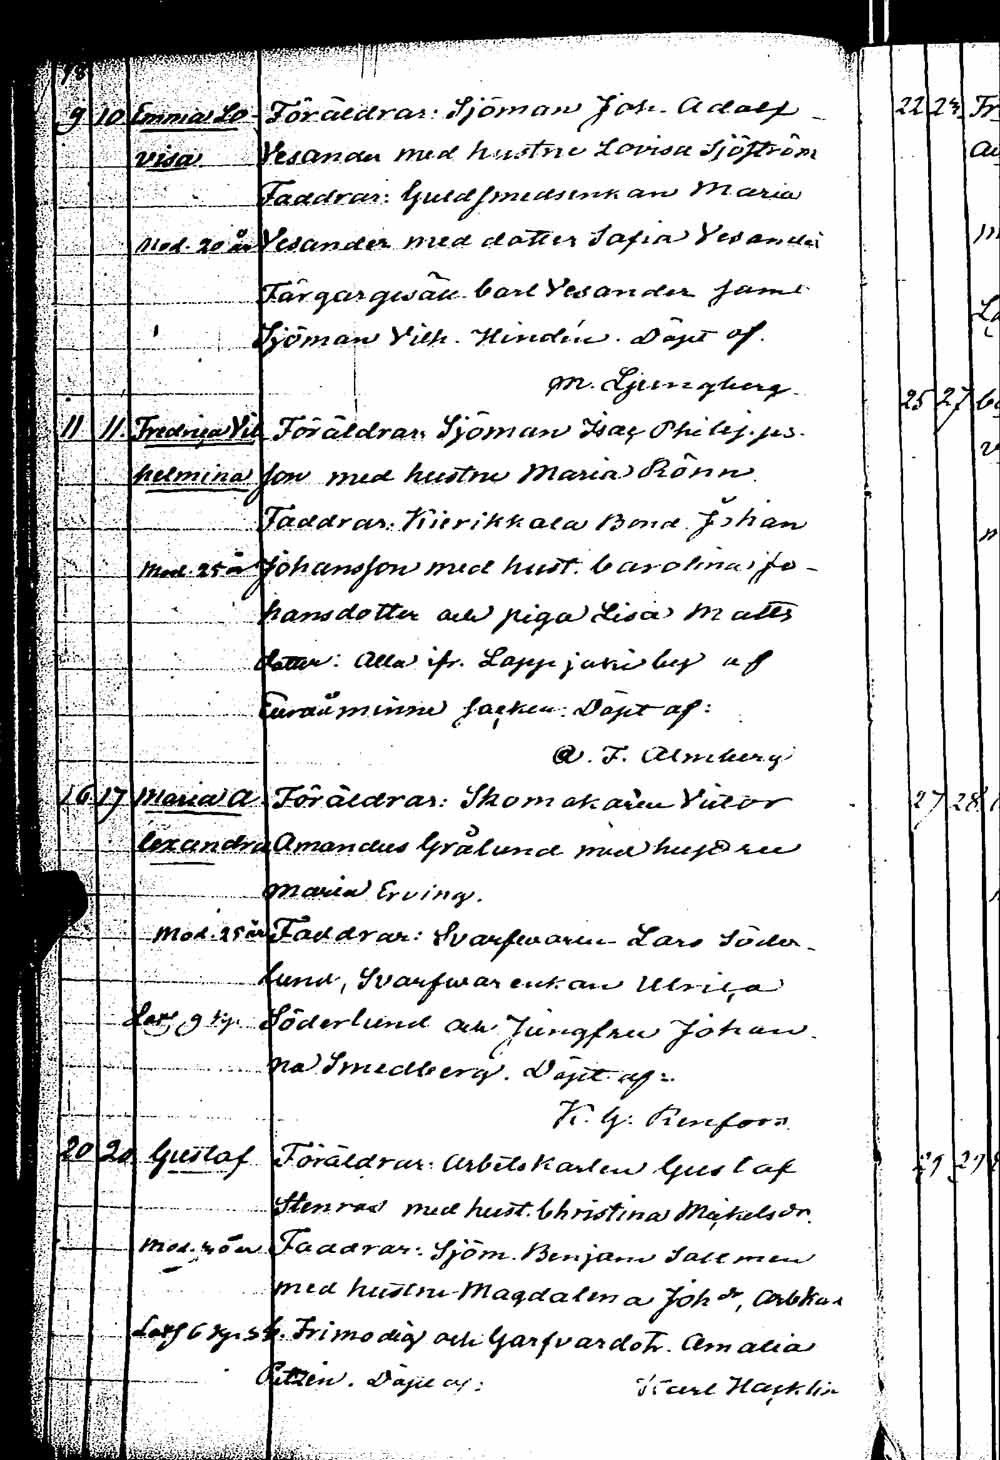 9 10 Emma Lo- Föräldrar: Sjöman Joh. Adolf
visa Vesander med hustru Lovisa Sjöström
Faddrar: Guldsmedsenkan Maria
Mod. 20 år Vesander med dotter Sofia Vesander
Färgargesäll Carl Vesander samt
Sjöman Vilh. Hindén. Döpt af.
M. Ljungberg.
11 11. Fredrica Vil Föräldrar: Sjöman Isac Philip-
helmina son med hustru Maria Rönn.
Faddrar: Kierikkala Bond. Johan
Mod. 25 år Johansson med hust. Carolina Jo-
hansdotter och piga Lisa Matts
dotter: Alla ifr. Lappjoki by af
Euraåminne socken. Döpt af:
A. F. Almberg
16 17 Maria A Föräldrar: Skomakaren Victor
lexandra Amandus Grålund med hustru
Maria Erving.
Mod. 25 år Faddrar: Svarfwaren Lars Söder-
lund, Svarfwarenkan Ulrica
9 Söderlund och Jungfru Johan
na Smedberg. Döpt af:
K. G. Renfors
20 20 Gustaf Föräldrar: Arbetskarlen Gustaf
Stenroos med hust. Christina Mickelsdr.
Mod. Faddrar: Sjöm. Benjam Sallmen
med hustru Magdalena Johdr, Arbkar
6 Frimodig och Garfvardotr. Amalia
Döpt af: Karl Hacklin
22 23 Fr
25 27
27 28
29 29